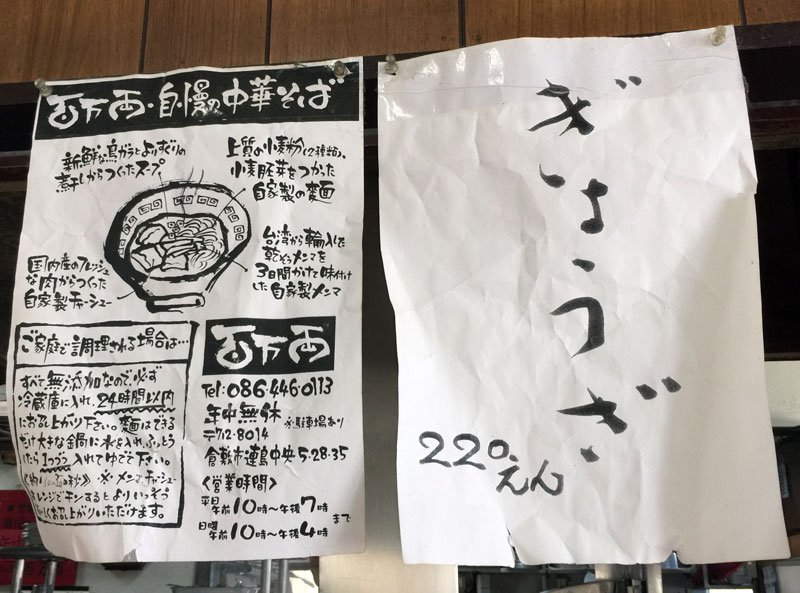 百万両・自慢の中華そば
新鮮な鳥ガラとよりすぐりの
煮干しからつくったスープ
上質の小麦粉(2種類)、
小麦胚芽をつかった
自家製の麺
国内産のフレッシュ
な肉からつくった
自家製チャーシュー
台湾から輸入した
乾そうメンマを
3日間かけて味付け
した自家製メンマ
ご家庭で調理される場合は…
すべて無添加なので、必ず
冷蔵庫に入れ、24時間以内
にお召し上がり下さい。麺はできる
だけ大きな鍋に水を入れ、ふっとう
したら1つづつ入れてゆでて下さい。
※メンマ、チャーシュー
レンジでチンするとよりいっそう
しくお召し上がりいただけます。
百万両
Tel:086-446-0113
年中無休 ※駐車場あり
〒712-8014
倉敷市連島中央5-28-35
〈営業時間〉
平日 午前10時〜午後7時
日曜 午前10時〜午後4時 まで
ぎょうざ
220えん